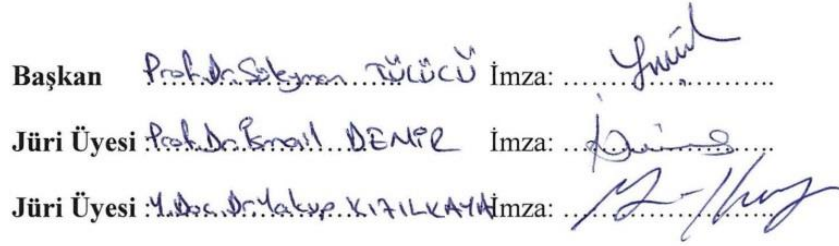 Başkan Prof. Dr. Süleyman TÜLÜCÜ İmza: ....................
Jüri Üyesi : Prof. Dr. İsmail DEMİR İmza: ....................
Jüri Üyesi : Y. Doç. Dr. Yakup KIZILKAYA İmza: ....................